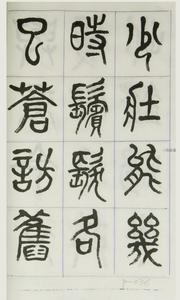 少壯能幾
時鬢髮各
已蒼訪舊